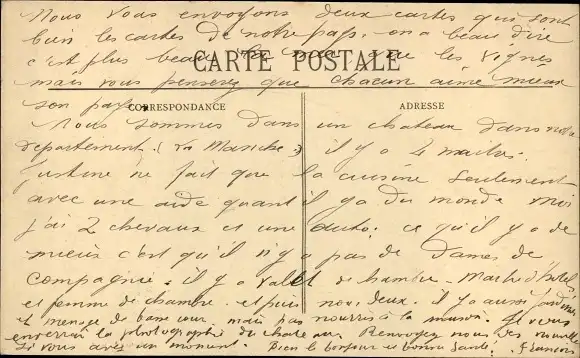 Nous vous envoyons deux cartes qui sont
bien les cartes de notre pays. on a beau dire
c'est plus beau la mer que les vignes
CARTE POSTALE
mais vous penserez que chacun aime mieux
son pays.
CORRESPONDANCE
ADRESSE
Nous sommes dans un chateau dans notre
departement. (La Manche) il y a 4 maitres.
Justine ne fait que la cuisine seulement
avec une aide quant il y a du monde moi
j'ai 2 chevaux et une auto. ce qu'il y a de
mieux c'est qu'il n'y a pas de Dames de
Compagnie. il y a valet de chambre. Maitre d'hotel
et femme de chambre. et puis nous deux. il y a aussi Jardinier
et menage de basse cour mais pas nourris a la maison. Je vous
enverrai la photographie du chateau. Renvoyez nous des nouvelles
Si vous avez un moment. Bien le bonjour et bonne Santé. François